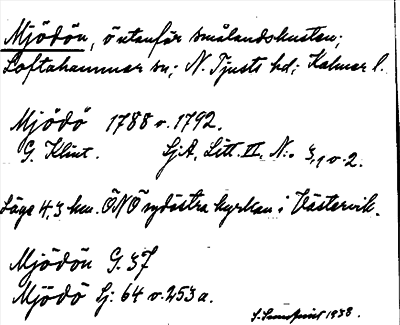 Mjödön, ö utanför smålandskusten;
Loftahammar sn; N. Tjusts hd; Kalmar l.
Mjödö 1788 o. 1792.
G. Klint. Sj.A. Litt. II. N:o 3,1 o. 2.
Läge 4,3 km. ÖNÖ sydöstra kyrkan i Västervik.
Mjödön G. 37
Mjödö Sj: 64 o. 253 a.
1938.